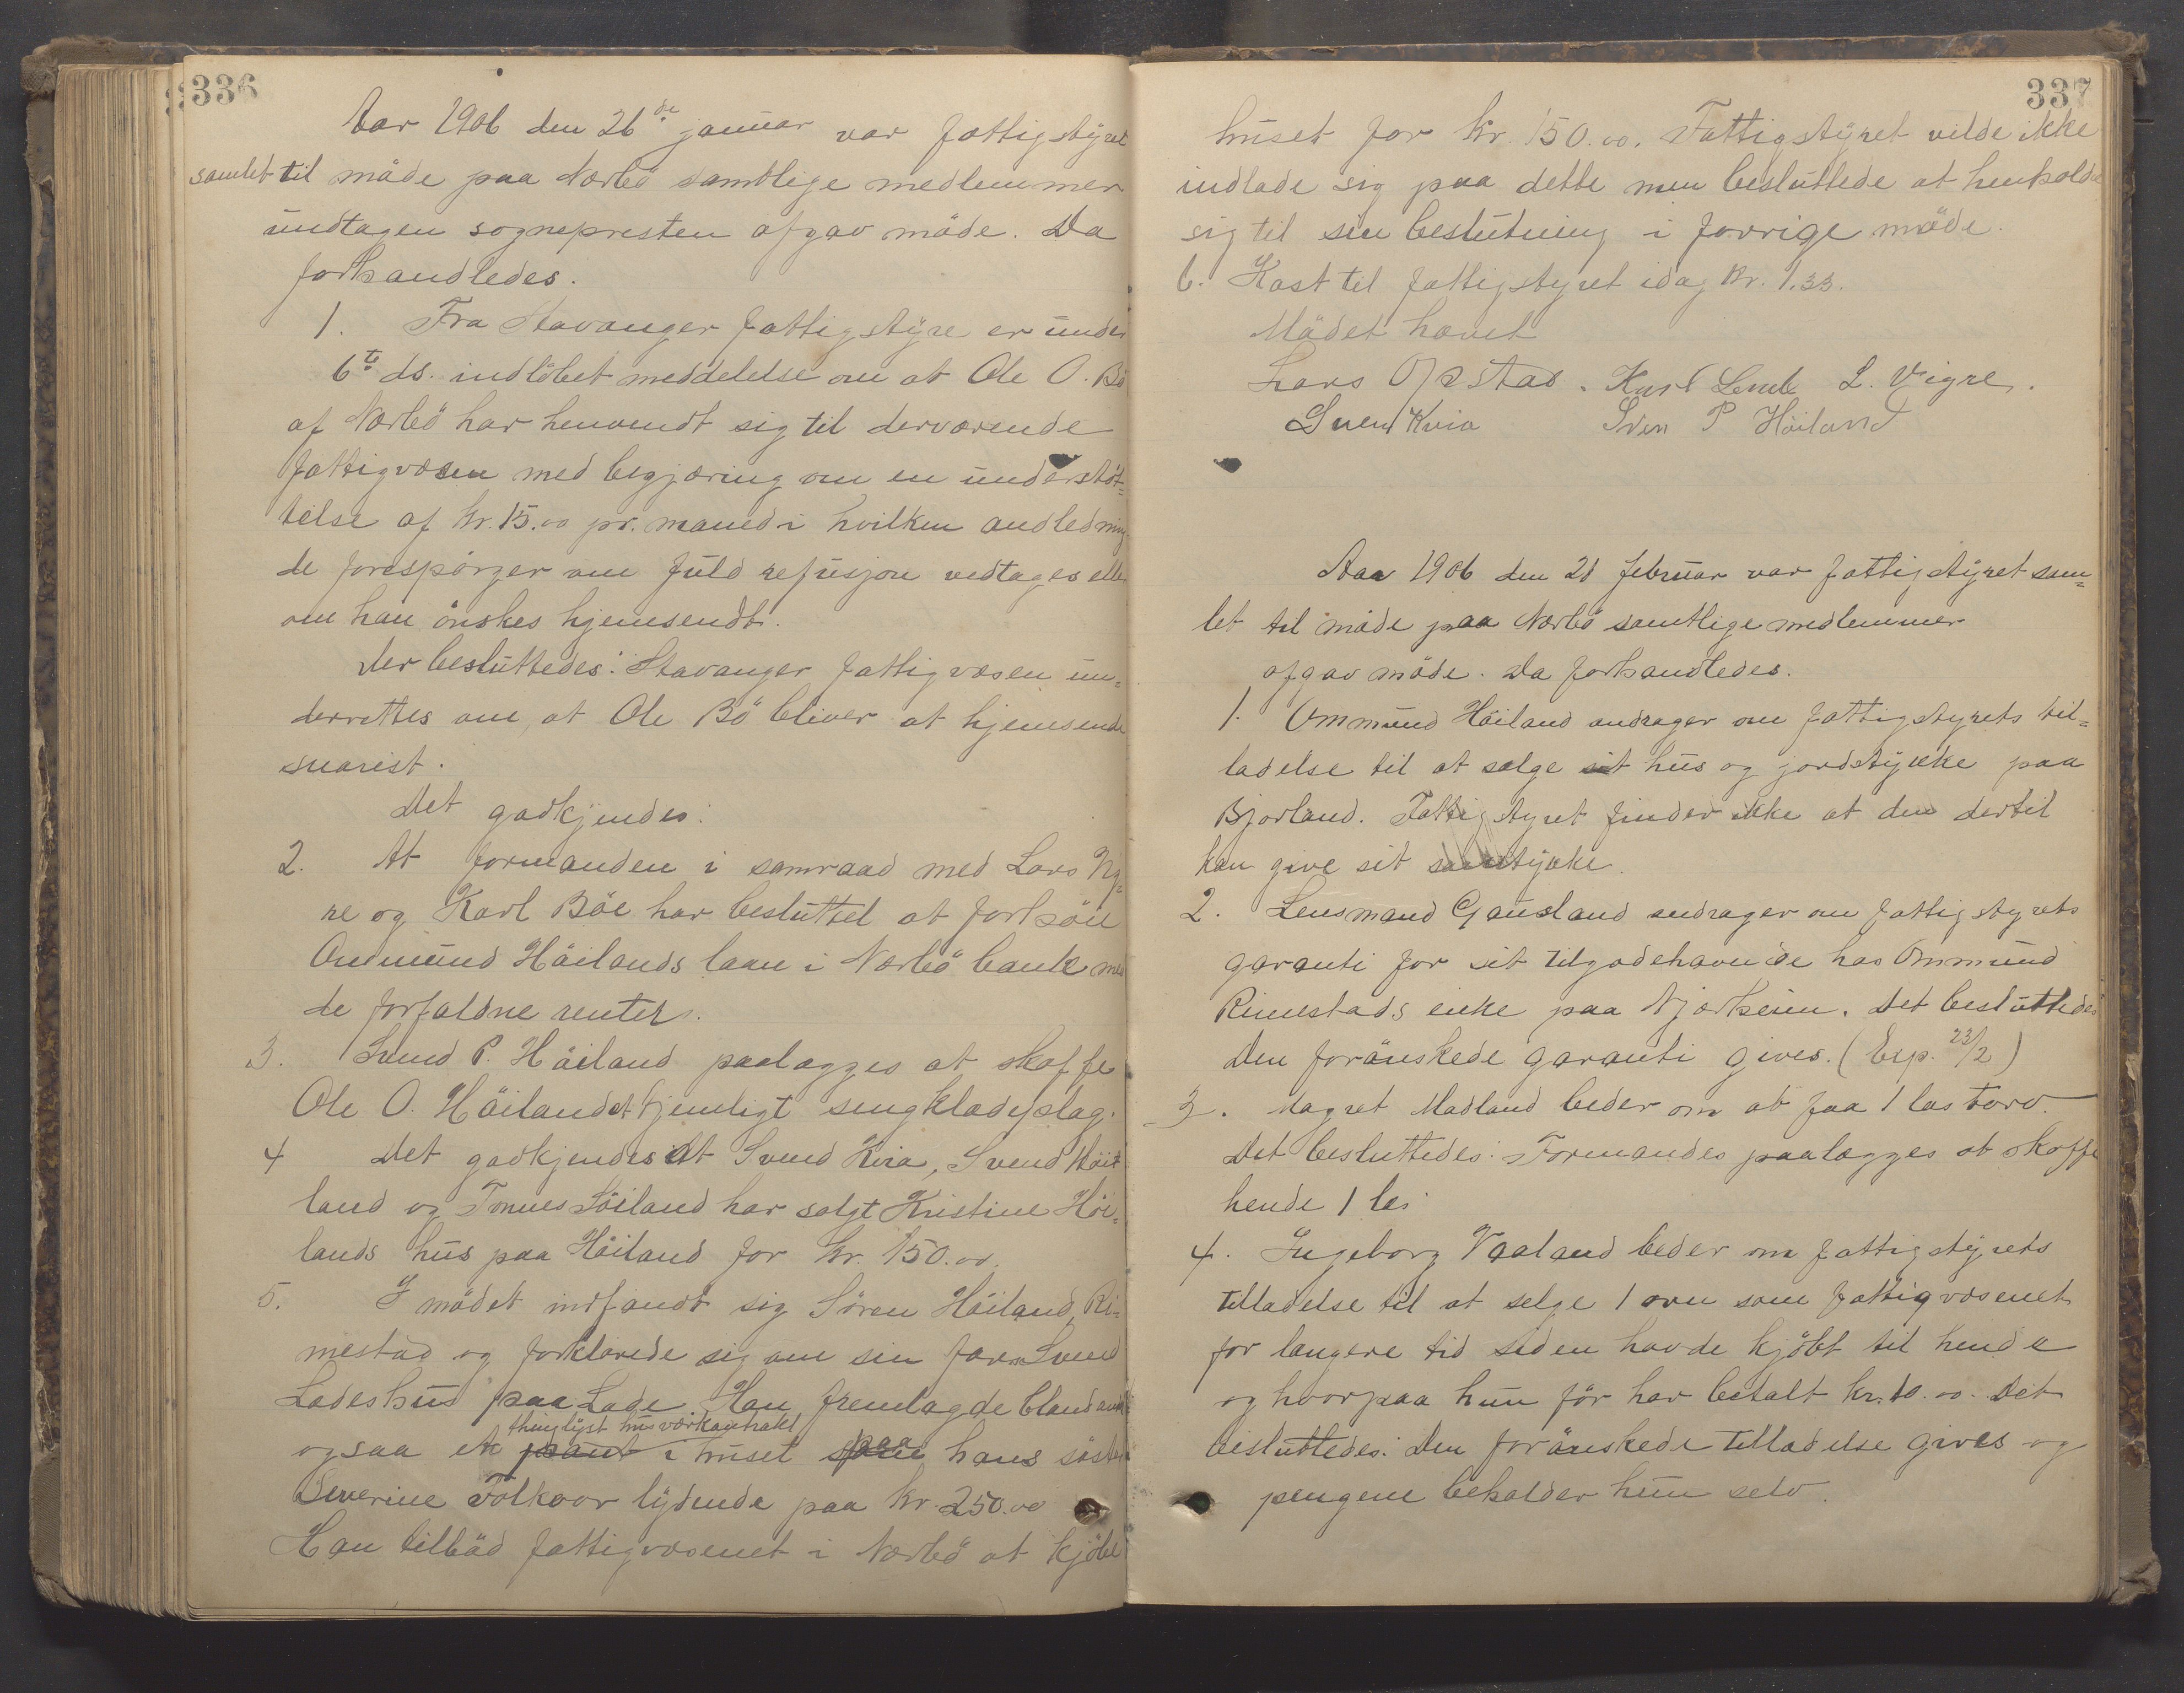 336
Aar 1906 den 26de januar var fattigstyret
samlet til møde paa Nærbø samtlige medlemmer
undtagen sognepresten afgav møde. Da
forhandledes.
1. Fra Stavanger fattigstyre er under
6te ds. indløbet meddelelse om at Ole O. Bø
af Nærbø har henvendt sig til derværende
fattigvæsen med begjæring om en understøt=
telse af kr. 15.00 pr. maaned i hvilken andledning
de forespørger om fuld refusjon vedtages eller
om han ønskes hjemsendt.
Der besluttedes: Stavanger fattigvæsen un=
derrettes om, at Ole Bø bliver at hjemsende
snarest.
Det godkjendes:
2. At formanden i samraad med Lars Vig=
re og Karl Böe har besluttet at forhøie
Ommund Höilands laan i Nærbø bank med
de forfaldne renter.
3. Svend P. Höiland paalægges at skaffe
Ole O. Höiland et tjenligt sengklædeplag.
4 Det godkjendes at Svend Kvia, Svend Höi=
land og Tønnes Höiland har solgt Kristine Höi=
lands hus paa Höiland for kr. 150.00.
5. I mødet indfandt sig Søren Höiland, Ri=
mestad og forklarede sig om sin far Svend
Ladeshus paa Lade. Han fremlagde bland andet
thinglyst huværkontrakt
ogsaa en pant i huset paa hans søster
Severine Folkvor lydende paa kr. 250.00
Han tilbød fattigvæsenet i Nærbø at kjøbe
337
huset for kr. 150.00. Fattigstyret vilde ikke
indlade sig paa dette men besluttede at henholde
sig til sin beslutning i forrige møde.
6. Kost til fattigstyret idag kr. 1.33.
Mødet hævet
Lars Opstad. Karl L. Vigre.
Svend Kvia Sven P Höiland
Aar 1906 den 21 februar var fattigstyret sam=
let til møde paa Nærbø samtlige medlemmer
afgav møde. Da forhandledes.
1. Ommund Höiland andrager om fattigstyrets til=
ladelse til at sælge sit hus og jordstykke paa
Bjorland. Fattigstyret finder ikke at den dertil
kan give sit samtykke.
2. Lensmand Gausland andrager om fattigstyrets
garanti for sit tilgodehavende hos Ommund
Rimestads enke paa Njærheim. Det besluttedes
Den forønskede garanti gives. (Exp. 23/2)
3. Magret Madland beder om at faa 1 las torv.
Det besluttedes: Formandes paalægges at skaffe
hende 1 las
4. Ingeborg Vaaland beder om fattigstyrets
tilladelse til at selge 1 ovn som fattigvæsenet
for længere tid siden havde kjøbt til hende
og hvorpaa hun før har betalt kr. 10.00. Det
besluttedes: Den forønskede tilladelse gives og
pengene beholder hun selv.